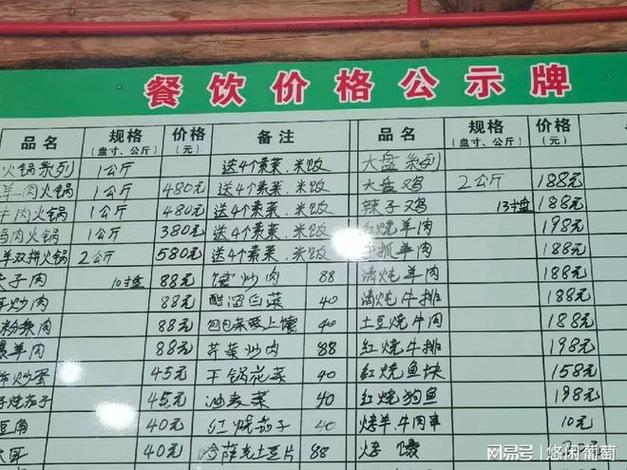 餐饮价格公示牌
品名 规格(盘寸、公斤) 价格(元) 备注 品名 规格(盘寸、公斤) 价格(元)
火锅系列 1公斤 送4个素菜.米饭 大盘系列
羊肉火锅 1公斤 480元 送4个素菜.米饭 大盘鸡 2公斤 188元
牛肉火锅 1公斤 480元 送4个素菜.米饭 辣子鸡 13寸盘 188元
鸡肉火锅 1公斤 380元 送4个素菜.米饭 烧羊肉 198元
羊双拼火锅 2公斤 580元 送4个素菜.米饭 手抓羊肉 188元
夹子肉 10寸盘 88元 馕炒肉 88 清炖羊肉 188元
炒肉 88元 醋溜白菜 40 清炖牛排 188元
粉条肉 88元 包包菜爱上馕 40 土豆烧牛肉 188元
爆羊肉 88元 芹菜炒肉 88 红烧牛排 188元
炒蛋 45元 干锅花菜 40 红烧鱼块 158元
烧茄子 45元 油麦菜 40 红烧狗鱼 198元
豆角 40元 红烧茄子 40 烤羊.牛肉串 10元
40元 哈萨克土豆片 88 烤馕
网易号 | 悠闲葡萄